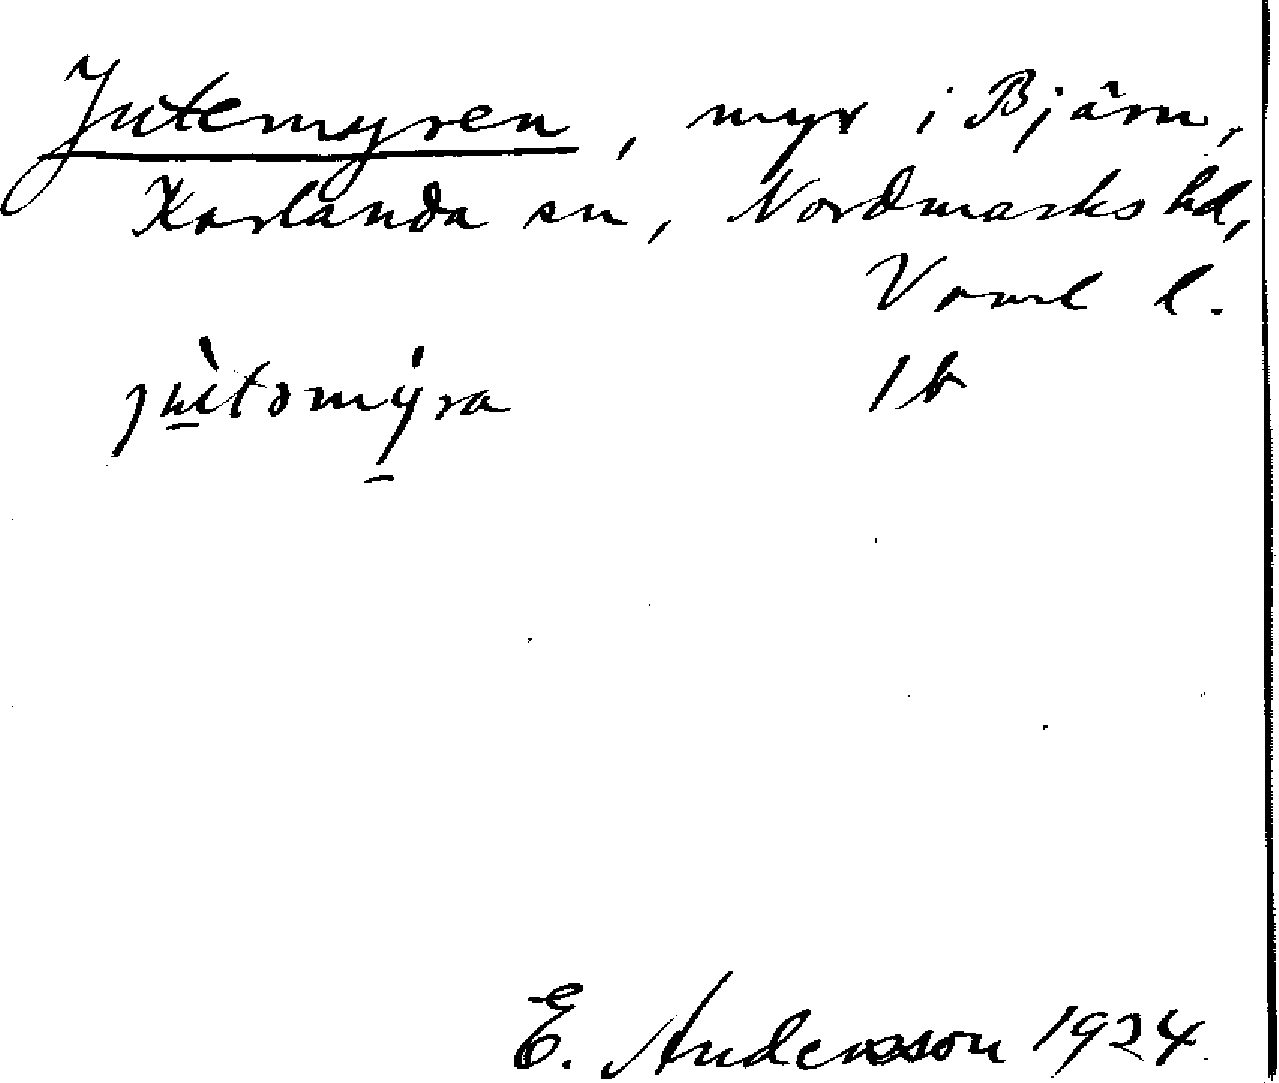 Jutemyren, myr i Bjärn,
Karlanda sn, Nordmarks hd,
Värml l.
jùtəmýra 1b
E. Andersson 1924